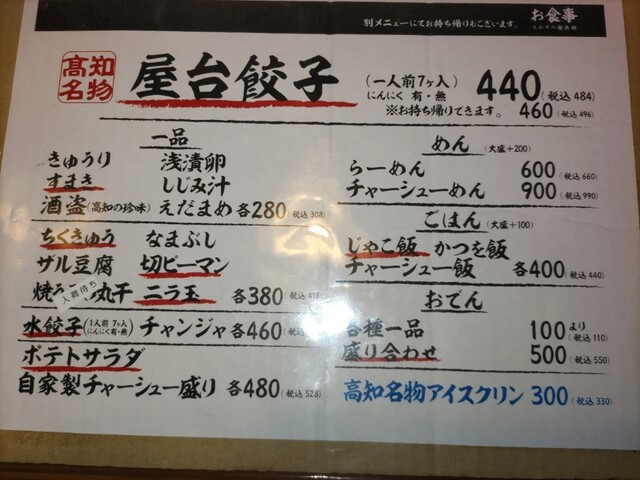 別メニューにてお持ち帰りもございます。
お食事
高知名物
屋台餃子
(一人前7ヶ入)
にんにく 有・無
440(税込 484)
※お持ち帰りできます。 460(税込 496)
一品
きゅうり 浅漬卵
すまき しじみ汁
酒盗(高知の珍味) えだまめ 各280(税込 308)
ちくきゅう なまぶし
ザル豆腐 切ピーマン
入荷待ち
焼う 丸干 ニラ玉 各380(税込 418)
水餃子(1人前 7ヶ入 にんにく有・無) チャンジャ 各460(税込
ポテトサラダ
自家製チャーシュー盛り 各480(税込 528)
めん (大盛+200)
らーめん 600(税込 660)
チャーシューめん 900(税込 990)
ごはん (大盛+100)
じゃこ飯 かつを飯
チャーシュー飯 各400(税込 440)
おでん
各種一品 100より(税込 110)
盛り合わせ 500(税込 550)
高知名物アイスクリン 300(税込 330)